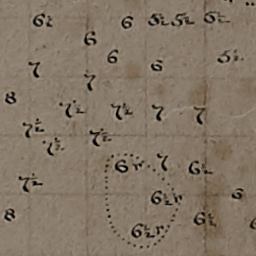 6½ 6 5½ 5½ 6½
6
7 6 6 5½
7
8 7½ 7½ 7 7
7½ 7½ 7½
6 r 7 6½
7½ 6½ r 6
8 6½ r 6½